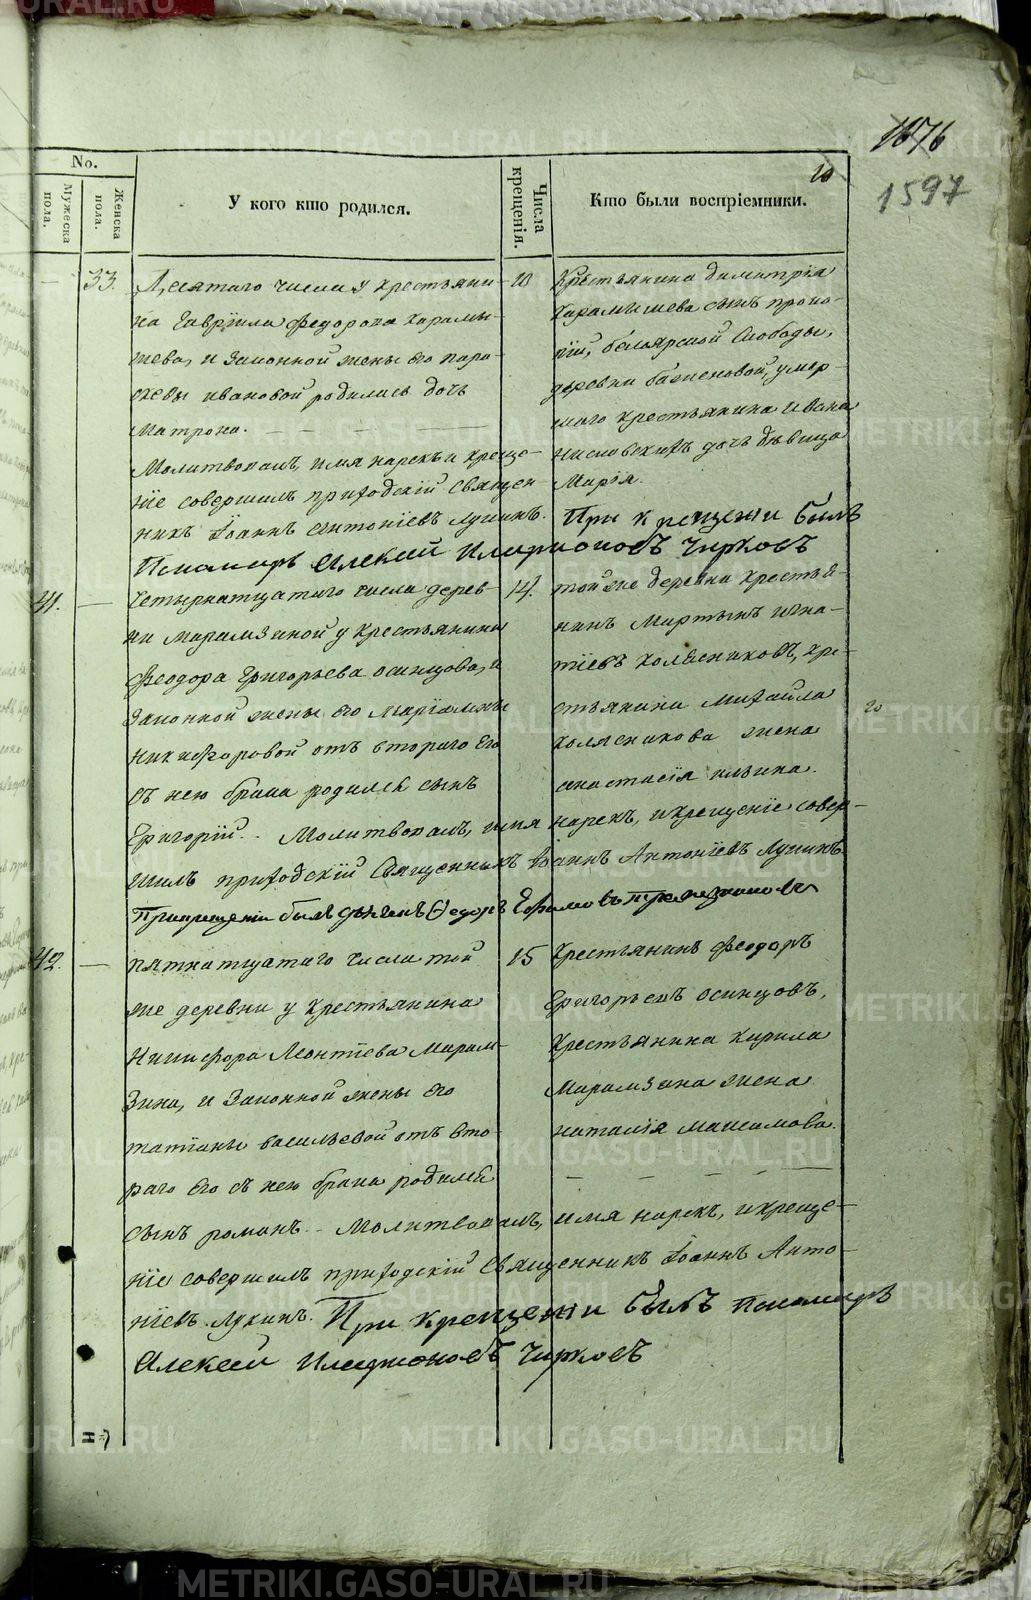 1676
1597
20
No.
Мужеска пола.
Женска пола.
У кого кто родился.
Числа крещенія.
Кто были воспріемники.
— 33.
Десятаго числа у крестьяни-
на Гавріила Федорова Карамы-
шева, и законной жены его пара-
скевы ивановой родилась дочь
Матрона.
Молитвовалъ, имя нарекъ и креще-
ніе совершилъ приходскій священ
никъ Іоаннъ Антоніевъ Лукинъ.
10
Крестьянина Димитрія
Карамышева сынъ проко-
пій, белоярской слободы,
деревни баженовой, умер-
шаго крестьянина Ивана
дочь дѣвица
Марія.
При крещеніи былъ
Пономарь Алексей Иларионовъ Чирковъ
41. —
Четырнатцатаго числа дерев-
ни марамзиной у крестьянина
Феодора Григорьева осинцова, и
законной жены его Маріамны
никифоровой отъ втораго его
съ нею брака родился сынъ
Григорій. Молитвовалъ, имя нарекъ, и крещеніе совер-
шилъ приходскій Священникъ Іоаннъ Антоніевъ Лукинъ.
14.
той же деревни крестья-
нинъ Мартынъ игна-
тіевъ колясниковъ, кре-
стьянина михайла
колясникова жена
анастасія ильина.
При крещеніи былъ дьячекъ Ѳедоръ Ефимовъ
42. —
пятнатцатаго числа той
же деревни у крестьянина
Никифора Леонтіева Марам-
зина, и законной жены его
татіаны васильевой отъ вто-
раго его съ нею брака родился
сынъ романъ. Молитвовалъ, имя нарекъ, и креще-
ніе совершилъ приходскій Священникъ Іоаннъ Анто-
ніевъ Лукинъ. При крещеніи былъ пономарь
Алексей Иларионовъ Чирковъ
15
Крестьянинъ Феодоръ
Григорьевъ осинцовъ,
крестьянина кирила
Марамзина жена
наталія максимова.
METRIKI.GASO-URAL.RU